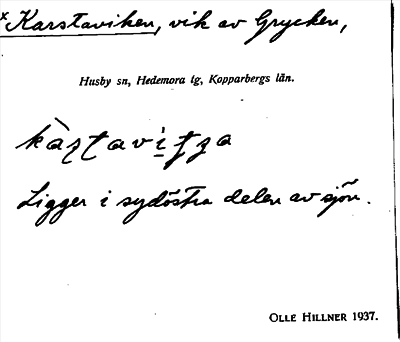 × Karstaviken, vik av Grycken,
Husby sn, Hedemora lg, Kopparbergs län.
Ligger i sydöstra delen av sjön.
OLLE HILLNER 1937.